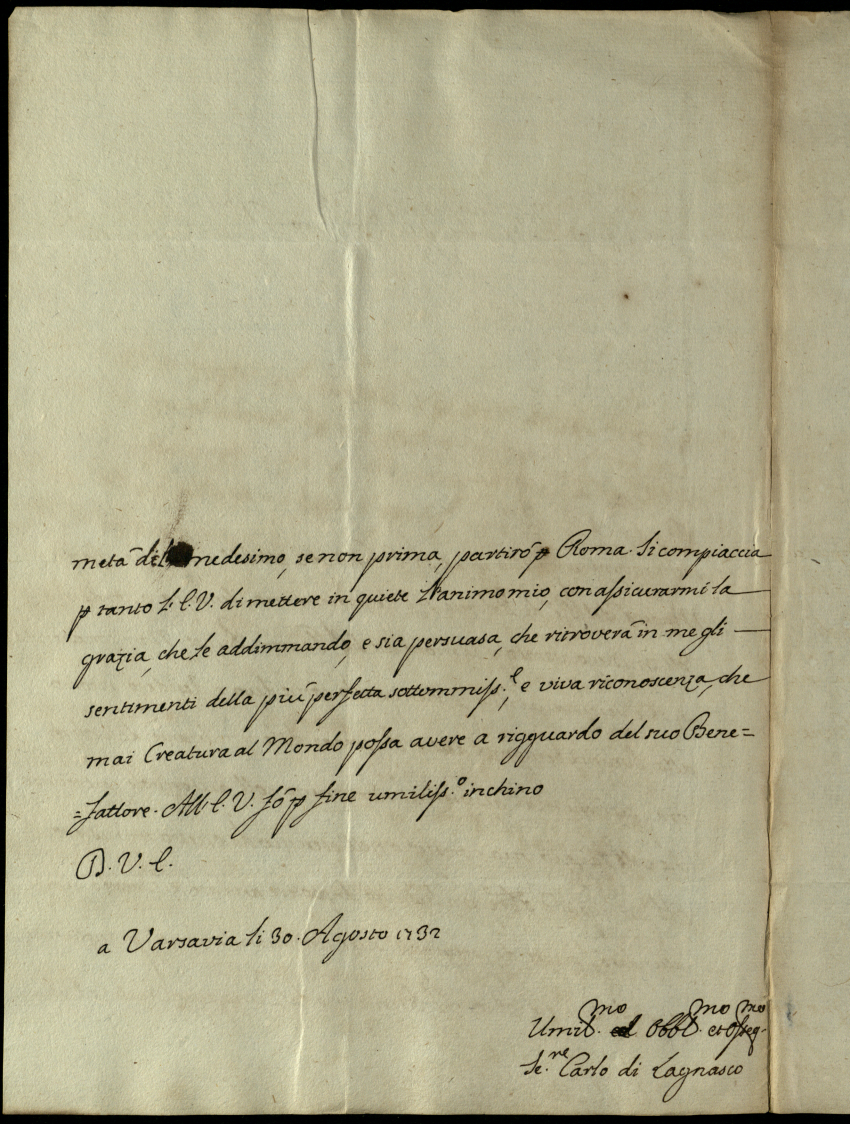 metà del medesimo, se non prima, partirò p Roma. Si compiaccia
p tanto L'E.V. di mettere in quiete l'animo mio, con assicurarmi la
grazia, che Le addimmando, e sia persuasa, che ritroverà in me gli
sentimenti della più perfetta sottommiss.e, e viva riconoscenza, che
mai Creatura al Mondo possa avere a rigguardo del suo Bene=
=fattore. All'E.V. fò p fine umiliss.o inchino
D. V. E.
a Varsavia li 30. Agosto 1732
Umil.mo ed Obbl.mo et Osseq.mo
Se.re Carlo di Lagnasco